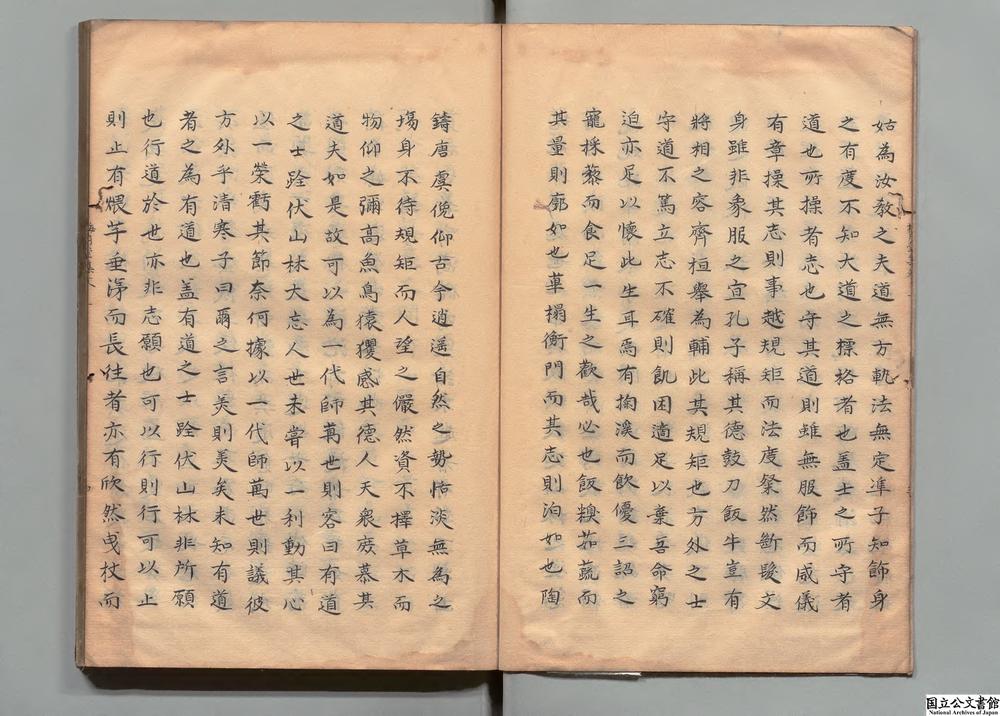 姑為汝教之夫道無方軌法無定準子知飾身
之有度不知大道之標格者也蓋士之所守者
道也所操者志也守其道則雖無服飾而威儀
有章操其志則事越規矩而法度粲然斷髮文
身雖非象服之宜孔子稱其德鼓刀飯牛豈有
將相之容齊桓舉為輔此其規矩也方外之士
守道不篤立志不確則飢困適足以棄吾命窮
迫亦足以懷此生耳焉有掬溪而飲優三詔之
寵採藜而食足一生之歡哉必也飯糗茹蔬而
其量則廓如也蓽榻衡門而其志則泊如也陶
鑄唐虞俛仰古今逍遥自然之勢恬淡無為之
場身不待規矩而人望之儼然資不擇草木而
物仰之彌高魚鳥猿玃感其德人天衆庶慕其
道夫如是故可以為一代師萬世則客曰有道
之士跧伏山林大忘人世未嘗以一利動其心
以一榮虧其節奈何據以一代師萬世則議彼
方外乎清寒子曰爾之言美則美矣未知有道
者之為有道也盖有道之士跧伏山林非所願
也行道於世亦非志願也可以行則行可以止
則止有煨芋垂涕而長往者亦有欣然曳杖而
国立公文書館
National Archives of Japan